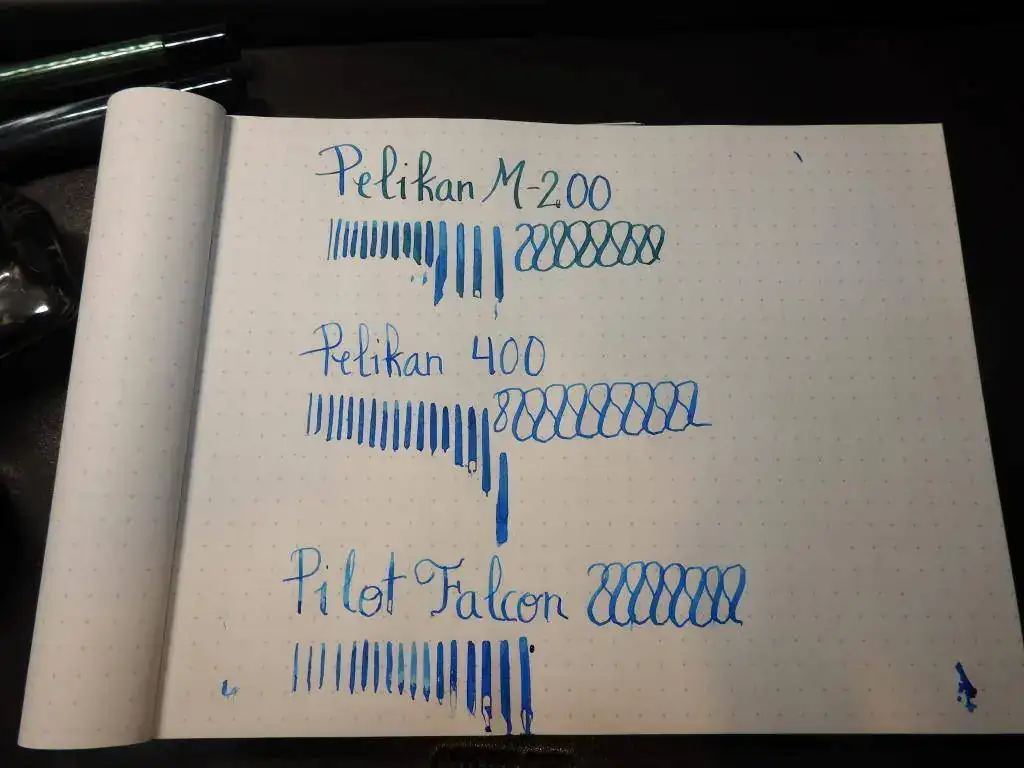 Pelikan M-200
Pelikan 400
Pilot Falcon